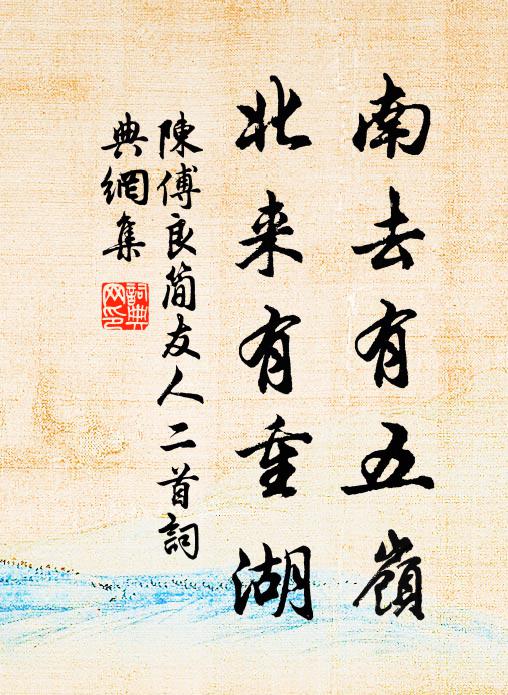 南去有五嶺
北来有重湖
陳傅良简友人二首詞
典網集
詞典
网印